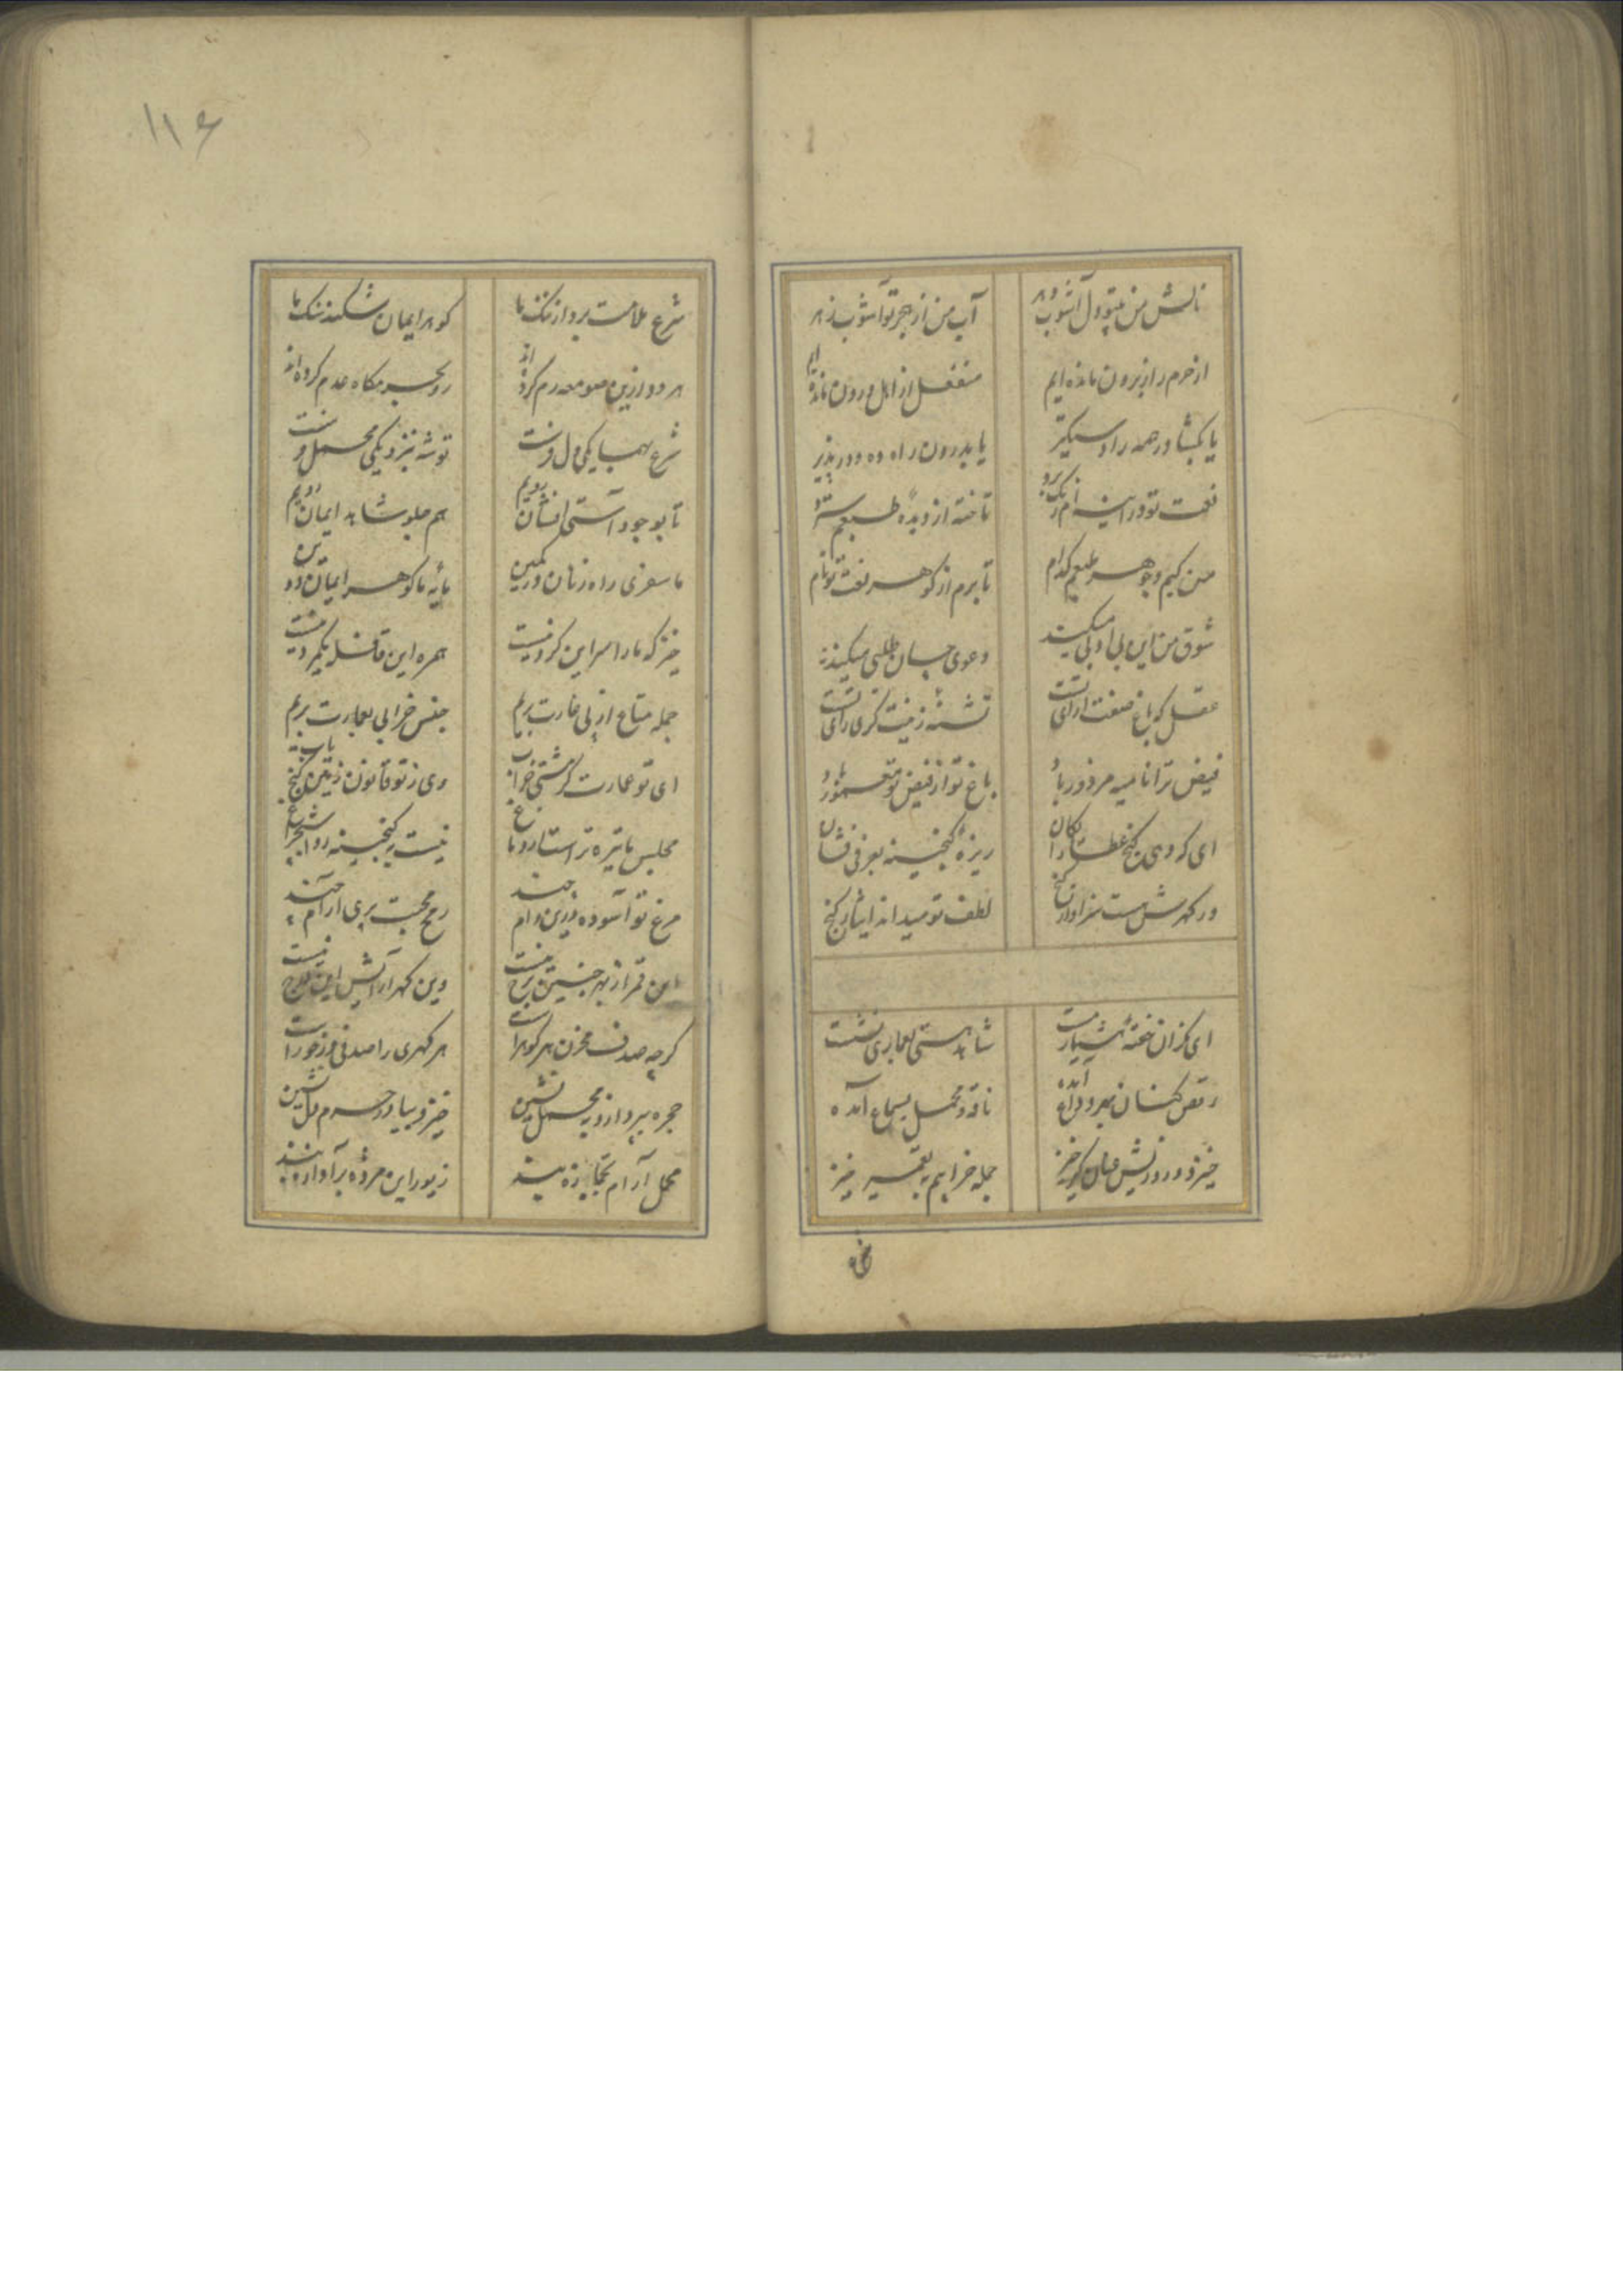 ۱۱۶
نالش من بیتو دل آشوب دهر
آب من از هجر تو آشوب زهر
از حرم راز برون مانده ایم
منفعل از اهل درون مانده ایم
یا بگشا در همه را دستگیر
یا بدرون راه ده و در پذیر
نعت تو در اینه ام رنک برد
تا خته از دیده طبعم سترد
من کیم و جوهر طبعم کدام
تا برم از کوهر نعت تو نام
شوق من این بی ادبی میکند
دعوی حسان طلبی میکند
عقل که باغ صفت ارای تست
تشنه زینت کری رای تست
فیض ترا نامیه مزدور باد
باغ تو از فیض تو معمور باد
ای که دهی کنج عطا رایکان
ریزه کنجینه بعرفی فشان
ور کهرش هست سزاوار کنج
لطف تو میداند ایثار کنج
ای کران خفته هشیار مست
شاهد هستی بعماری نشست
رقص کنان بهر وداع آمده
ناقه و محمل بسماع آمده
خیز و درو رزنش عنان کیر خیز
جمله خرابیم به تعمیر خیز
شرع ملامت برد از ننک ما
کوهر ایمان شکند سنک ما
هر دو ازین صومعه رم کرده اند
رو بحرمکاه عدم کرده اند
شرع بهمسایکی دل ورست
توشه بنزدیکی محمل ورست
تا بوجود آستی افشان رویم
هم جلو شاهد ایمان رویم
ما سفری راه زنان در کمین
مایه ما کوهر ایمان و دین
خیز که ما را سر این کرد نیست
همره این قافله یکمرد نیست
جمله متاع از پی غارت بریم
جنس خرابی بعمارت بریم
ای تو عمارت کر هستی خراب
وی ز تو قانون زمین کنج یاب
مجلس ما تیره تر است از و ما غ
نیست به کنجینه روا شبچراغ
مرغ تو آسوده درین دام چند
رمح محبت بری آرام چند
این قمر از بهر چنین برج نیست
وین کهر آرایش این درج نیست
کرچه صدف مخزن هر کوهر است
هر کهری را صدفی در خور است
حجره بپرداز و بمحمل نشین
خیز و بیا در حرم دل نشین
محمل آرام بجمازه بند
زیور این مژده بر آوازه بند